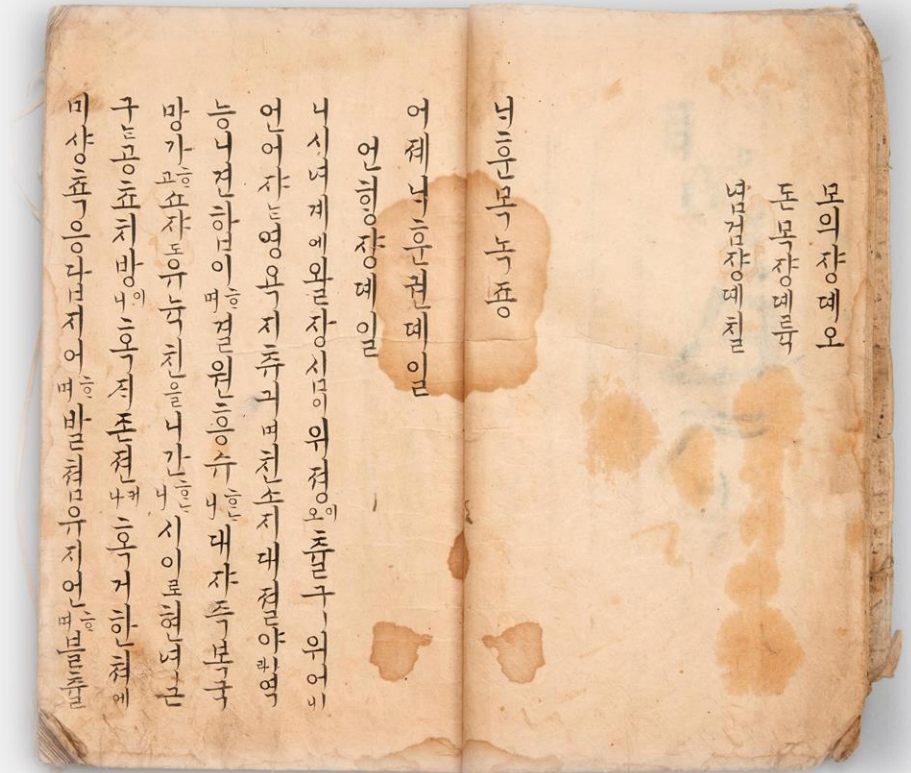 모의쟝뎨오
돈목쟝뎨륙
념검쟝뎨칠
ᄂᆡ훈목녹죵
어졔ᄂᆡ훈권뎨일
언ᄒᆡᆼ쟝뎨일
니시녀계에왈장심이위졍이오츌구위어니
언어쟈ᄂᆞᆫ영욕지츄긔며친소지대졀야라역
능니견합이ᄒᆞ며결원흥슈ᄒᆞᄂᆞ니대쟈즉복국
망가ᄒᆞ고쇼쟈도유뉵친을니간ᄒᆞᄂᆞ니시이로현녀근
구ᄂᆞᆫ공쵸치방이니혹ᄌᆡ존젼커나혹거한쳐에
미샹쵹응답지어ᄒᆞ며발쳠유지언ᄒᆞ며블츌